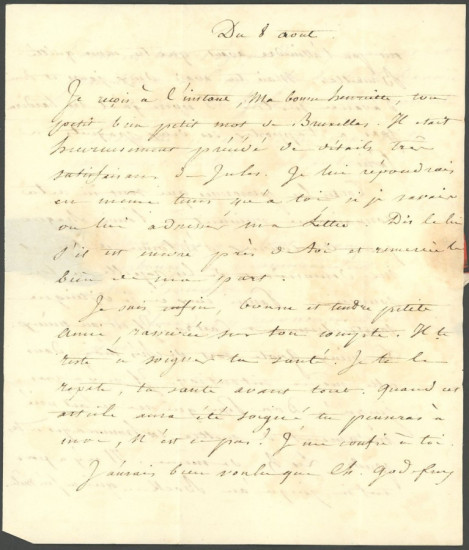 Du 8 août
Je reçois à l'instant, Ma bonne henriette, ton
petit bien petit mot de Bruxelles. Il était
heureusement précédé de détails très
satisfaisans de Jules. Je lui répondrais
en même tems qu'à toi si je savais
où lui adresser ma lettre. Dis le lui
s'il est encore près de toi et remercie le
bien de ma part.
Je suis enfin, bonne et tendre petite
amie, rassurée sur ton compte. Il te
reste à soigner ta santé. Je te le
répète, ta santé avant tout. Quand cet
article aura été soigné tu penseras à
moi, N'est ce pas? J'me confie à toi.
J'aurais bien voulu que Ch. Godfroy